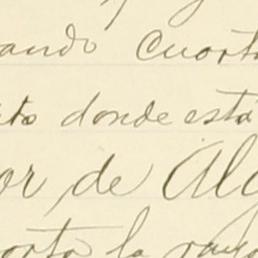 ando cuart
to donde está
or de Al
orto la raya